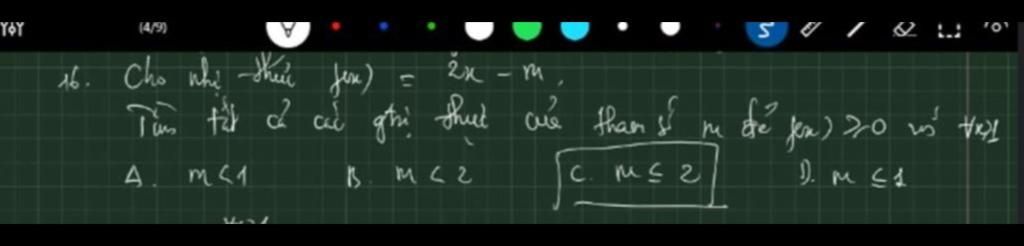 (4/9)
16. Cho nhị thức f(x) = 2x - m.
Tìm tất cả các gtrị thực của tham số m để f(x) ≥ 0 với ∀x>1
A. m<1 B. m < 2 C. m ≤ 2 D. m ≤ 1